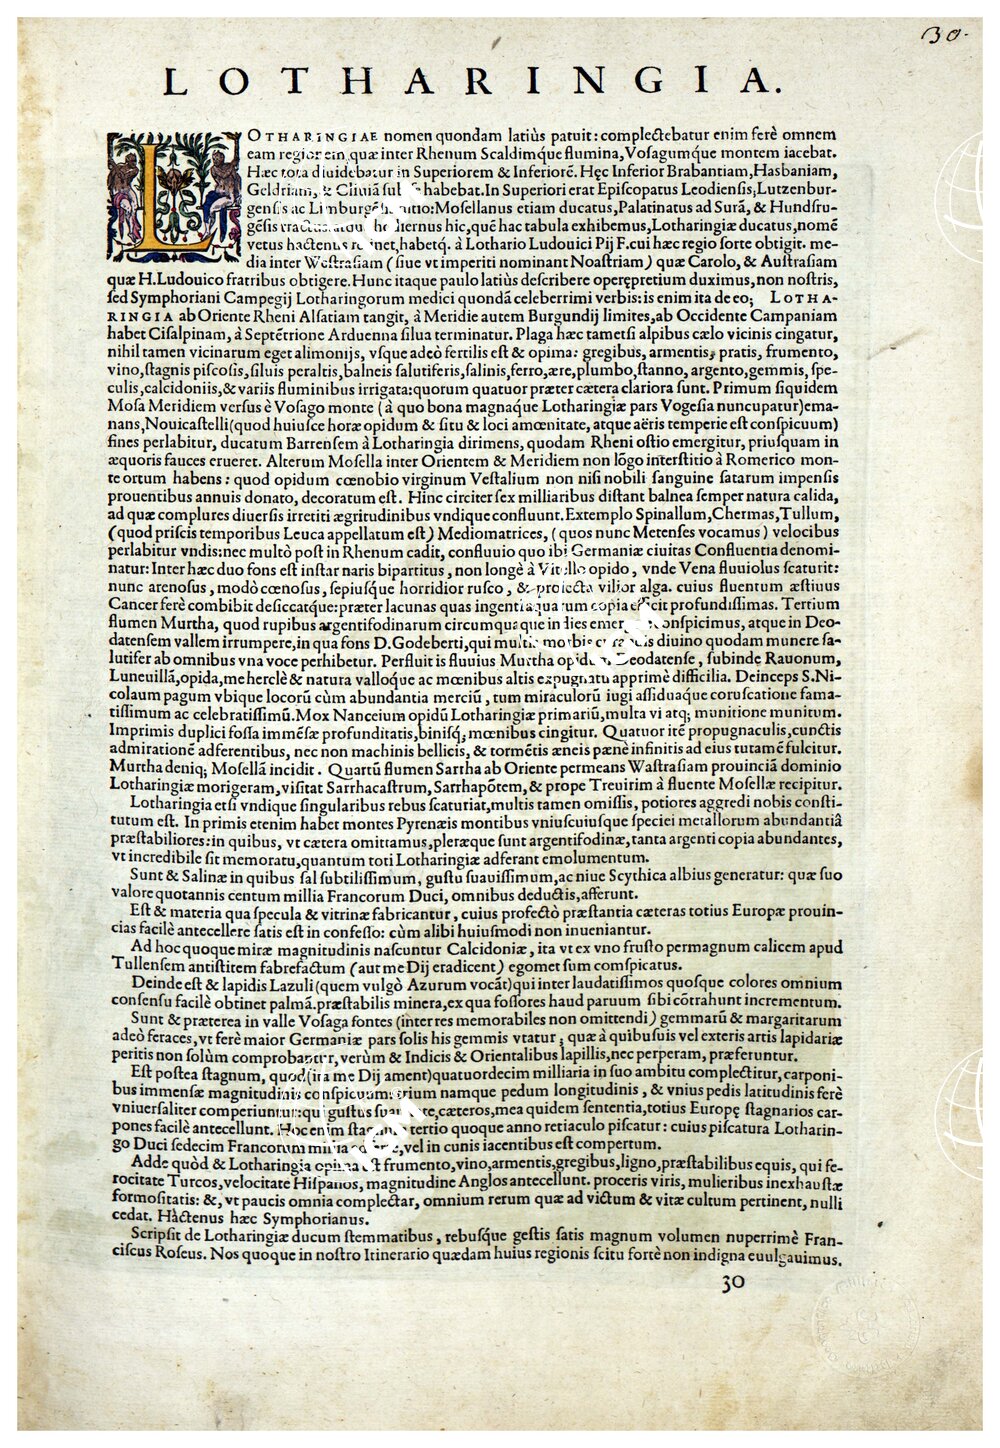 30.
LOTHARINGIA.
LOTHARINGIAE nomen quondam latiùs patuit: complectebatur enim ferè omnem
eam quæ inter Rhenum Scaldimq́ue flumina, Vosagumque montem iacebat.
Hæc tota diuidebatur in Superiorem & Inferiorē. Hęc Inferior Brabantiam, Hasbaniam,
Geldriam, & Cliuiā habebat. In Superiori erat Episcopatus Leodiensis, Lutzenbur-
gensis ac Mosellanus etiam ducatus, Palatinatus ad Surā, & Hundsru-
gēsis hic, quē hac tabula exhibemus, Lotharingiæ ducatus, nomē
vetus hactenus habetq́. à Lothario Ludouici Pij F. cui hæc regio sorte obtigit. me-
dia inter Westrasiam (siue vt imperiti nominant Noastriam) quæ Carolo, & Austrasiam
quæ H. Ludouico fratribus obtigere. Hunc itaque paulo latiùs describere operępretium duximus, non nostris,
sed Symphoriani Campegij Lotharingorum medici quondā celeberrimi verbis: is enim ita de eo; LOTHA-
RINGIA ab Oriente Rheni Alsatiam tangit, à Meridie autem Burgundij limites, ab Occidente Campaniam
habet Cisalpinam, à Septētrione Arduenna silua terminatur. Plaga hæc tametsi alpibus cælo vicinis cingatur,
nihil tamen vicinarum eget alimonijs, vsque adeò fertilis est & opima: gregibus, armentis, pratis, frumento,
vino, stagnis piscosis, siluis peraltis, balneis salutiferis, salinis, ferro, ære, plumbo, stanno, argento, gemmis, spe-
culis, calcidoniis, & variis fluminibus irrigata: quorum quatuor præter cætera clariora sunt. Primum siquidem
Mosa Meridiem versus è Vosago monte (à quo bona magnaq́ue Lotharingiæ pars Vogesia nuncupatur) ema-
nans, Nouicastelli (quod huiusce horæ opidum & situ & loci amœnitate, atque aëris temperie est conspicuum)
fines perlabitur, ducatum Barrensem à Lotharingia dirimens, quodam Rheni ostio emergitur, priusquam in
æquoris fauces erueret. Alterum Mosella inter Orientem & Meridiem non lōgo interstitio à Romerico mon-
te ortum habens: quod opidum cœnobio virginum Vestalium non nisi nobili sanguine satarum impensis
prouentibus annuis donato, decoratum est. Hinc circiter sex milliaribus distant balnea semper natura calida,
ad quæ complures diuersis irretiti ægritudinibus vndique confluunt. Extemplo Spinallum, Chermas, Tullum,
(quod priscis temporibus Leuca appellatum est) Mediomatrices, (quos nunc Metenses vocamus) velocibus
perlabitur vndis: nec multò post in Rhenum cadit, confluuio quo ibi Germaniæ ciuitas Confluentia denomi-
natur: Inter hæc duo fons est instar naris bipartitus, non longè à Vitello opido, vnde Vena fluuiolus scaturit:
nunc arenosus, modò cœnosus, sepiusq́ue horridior rusco, & proiecta vilior alga. cuius fluentum æstiuus
Cancer ferè combibit desiccatq́ue: præter lacunas quas ingenti aquarum copia efficit profundissimas. Tertium
flumen Murtha, quod rupibus argentifodinarum circumquaque in dies conspicimus, atque in Deo-
datensem vallem irrumpere, in qua fons D. Godeberti, qui multis morbis diuino quodam munere sa-
lutifer ab omnibus vna voce perhibetur. Perfluit is fluuius Murtha opidum Deodatense, subinde Rauonum,
Luneuillā, opida, mehercle & natura valloque ac mœnibus altis expugnatu apprimè difficilia. Deinceps S. Ni-
colaum pagum vbique locorū cùm abundantia merciū, tum miraculorū iugi assiduaque coruscatione fama-
tissimum ac celebratissimū. Mox Nanceium opidū Lotharingiæ primariū, multa vi atq; munitione munitum.
Imprimis duplici fossa immēsæ profunditatis, binisq́; mœnibus cingitur. Quatuor itē propugnaculis, cunctis
admirationē adferentibus, nec non machinis bellicis, & tormētis æneis pæne infinitis ad eius tutamē fulcitur.
Murtha deniq; Mosellā incidit. Quartū flumen Sartha ab Oriente permeans Wastrasiam prouinciā dominio
Lotharingiæ morigeram, visitat Sarrhacastrum, Sarrhapōtem, & prope Treuirim à fluente Mosellæ recipitur.
Lotharingia etsi vndique singularibus rebus scaturiat, multis tamen omissis, potiores aggredi nobis consti-
tutum est. In primis etenim habet montes Pyrenæis montibus vniuscuiusque speciei metallorum abundantiâ
præstabiliores: in quibus, vt cætera omittamus, pleræque sunt argentifodinæ, tanta argenti copia abundantes,
vt incredibile sit memoratu, quantum toti Lotharingiæ adferant emolumentum.
Sunt & Salinæ in quibus sal subtilissimum, gustu suauissimum, ac niue Scythica albius generatur: quæ suo
valore quotannis centum millia Francorum Duci, omnibus deductis, afferunt.
Est & materia qua specula & vitrinæ fabricantur, cuius profectò præstantia cæteras totius Europæ prouin-
cias facilè antecellere satis est in confesso: cùm alibi huiusmodi non inueniantur.
Ad hoc quoque miræ magnitudinis nascuntur Calcidoniæ, ita vt ex vno frusto permagnum calicem apud
Tullensem antistitem fabrefactum (aut me Dij eradicent) egomet sum comspicatus.
Deinde est & lapidis Lazuli (quem vulgò Azurum vocāt) qui inter laudatissimos quosque colores omnium
consensu facilè obtinet palmā. præstabilis minera, ex qua fossores haud paruum sibi cōtrahunt incrementum.
Sunt & præterea in valle Vosaga fontes (inter res memorabiles non omittendi) gemmarū & margaritarum
adeò feraces, vt ferè maior Germaniæ pars solis his gemmis vtatur; quæ à quibusuis vel exteris artis lapidariæ
peritis non solùm comprobantur, verùm & Indicis & Orientalibus lapillis, nec perperam, præferuntur.
Est postea stagnum, quod (ita me Dij ament) quatuordecim milliaria in suo ambitu complectitur, carponi-
bus immensæ magnitudinis conspicuum: trium namque pedum longitudinis, & vnius pedis latitudinis ferè
vniuersaliter comperiuntur: qui gustus cæteros, mea quidem sententia, totius Europę stagnarios car-
pones facilè antecellunt. Hoc enim tertio quoque anno retiaculo piscatur: cuius piscatura Lotharin-
go Duci sedecim Francorum millia vel in cunis iacentibus est compertum.
Adde quòd & Lotharingia opima est frumento, vino, armentis, gregibus, ligno, præstabilibus equis, qui fe-
rocitate Turcos, velocitate Hispanos, magnitudine Anglos antecellunt. proceris viris, mulieribus inexhaustæ
formositatis: &, vt paucis omnia complectar, omnium rerum quæ ad victum & vitæ cultum pertinent, nulli
cedat. Hactenus hæc Symphorianus.
Scripsit de Lotharingiæ ducum stemmatibus, rebusq́ue gestis satis magnum volumen nuperrimè Fran-
ciscus Roseus. Nos quoque in nostro Itinerario quædam huius regionis scitu fortè non indigna euulgauimus.
30